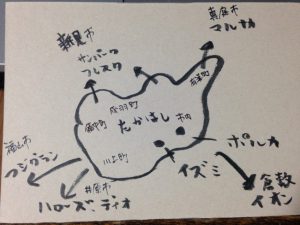 真庭市
マルナカ
新見市
サンパーク
フレスタ
有漢町
成羽町
備中町
たかはし
市内
川上町
ポルカ
福山市
フジグラン
イズミ
井原市
ハローズ、ディオ
倉敷
イオン